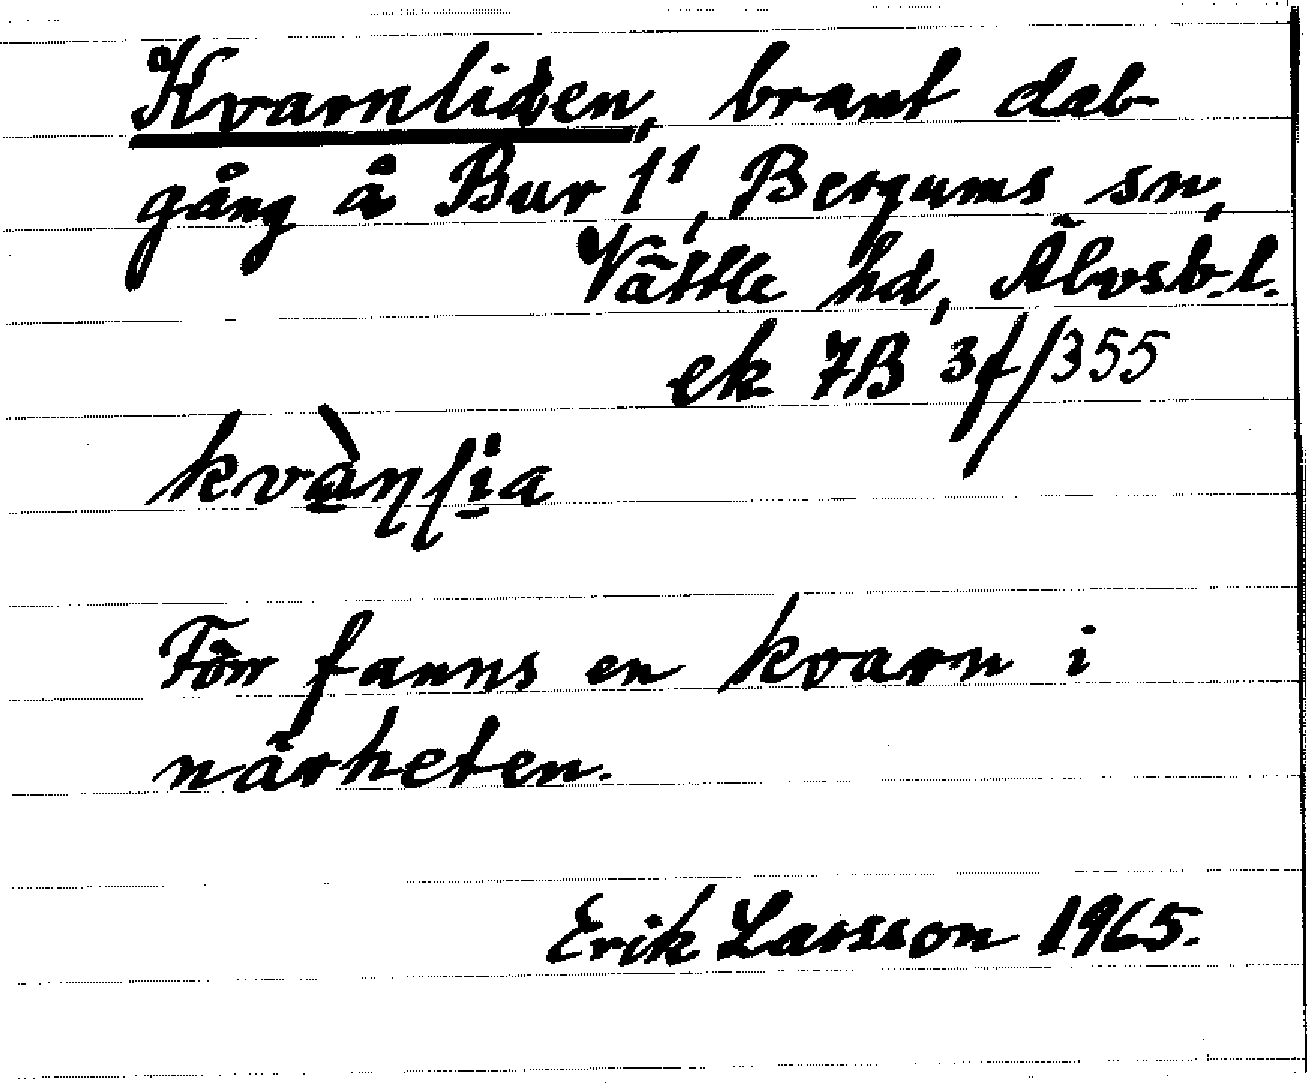 Kvarnliden, brant dab-
gång å Bur 1¹, Bergums sn,
Vättle hd, Älvsb. l.
ek 7B 3f/355
Förr fanns en kvarn i
närheten.
Erik Larsson 1965.